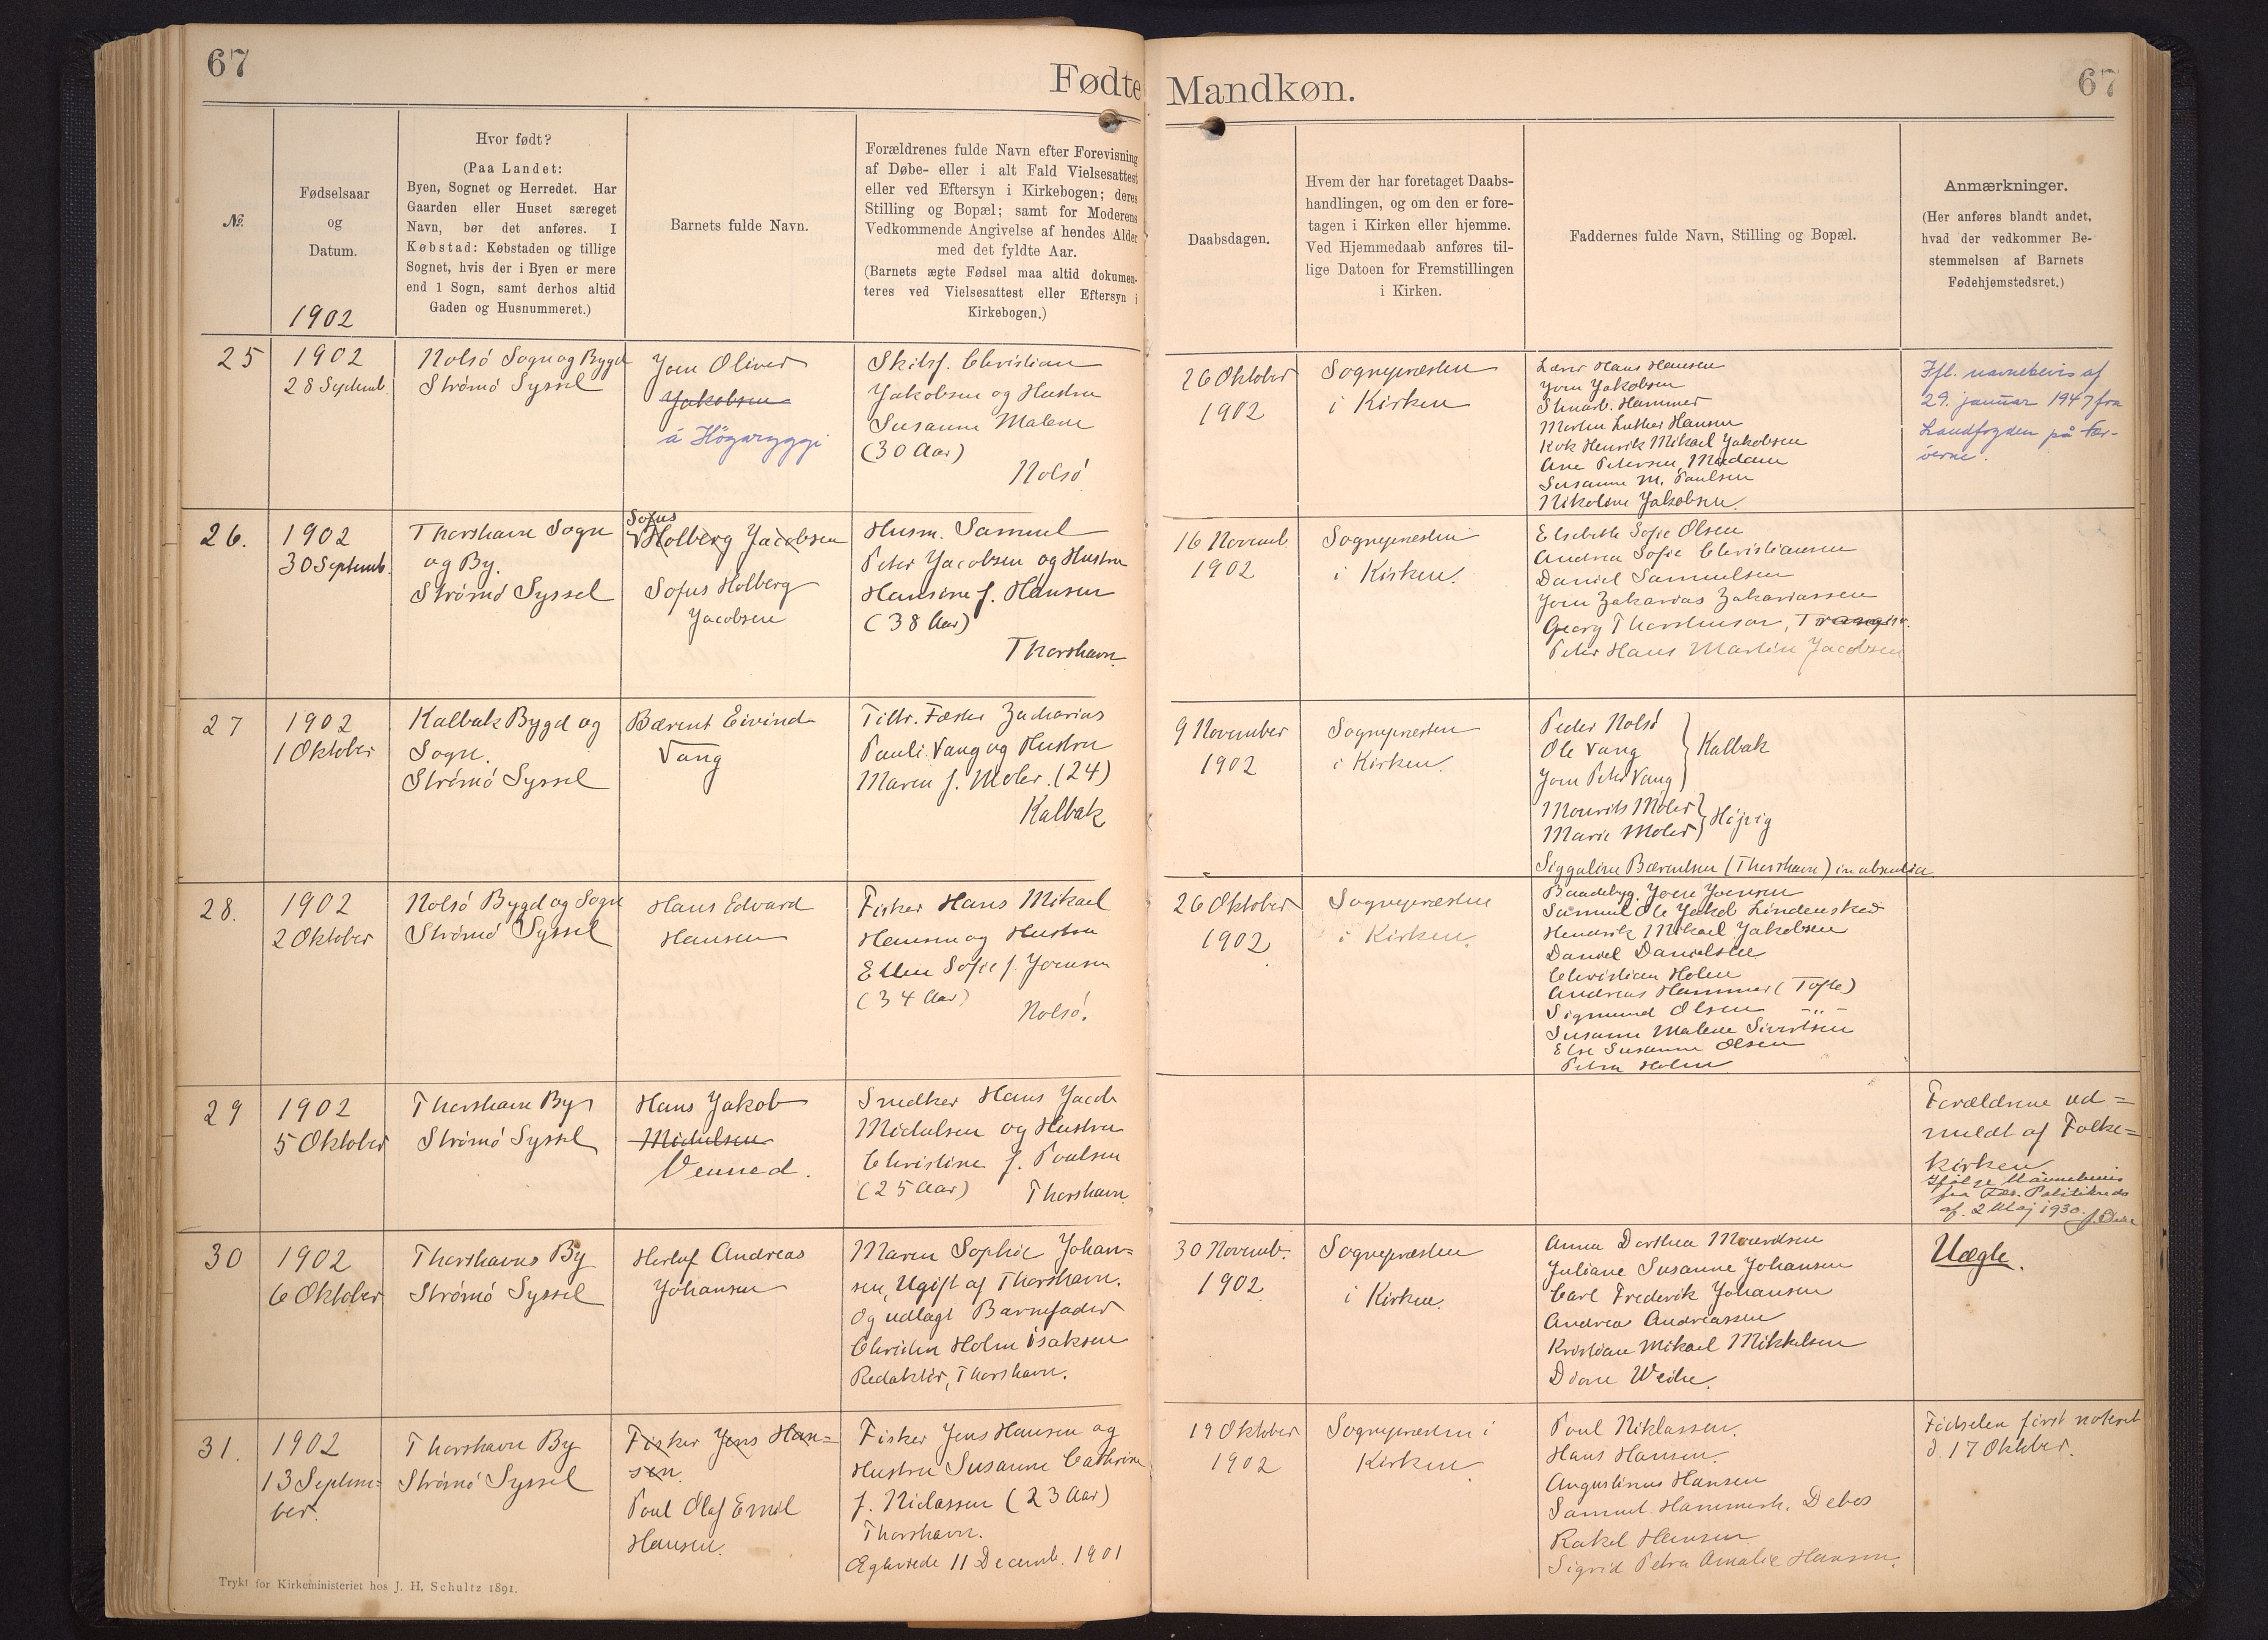 67
Fødte
Mandkøn.
67
№.
Fødselsaar
og
Datum.
1902
Hvor født?
(Paa Landet:
Byen, Sognet og Herredet. Har
Gaarden eller Huset særeget
Navn, bør det anføres. I
Købstad: Købstaden og tillige
Sognet, hvis der i Byen er mere
end 1 Sogn, samt derhos altid
Gaden og Husnummeret.)
Barnets fulde Navn.
Forældrenes fulde Navn efter Forevisning
af Døbe- eller i alt Fald Vielsesattest
eller ved Eftersyn i Kirkebogen; deres
Stilling og Bopæl; samt for Moderens
Vedkommende Angivelse af hendes Alder
med det fyldte Aar.
(Barnets ægte Fødsel maa altid dokumen-
teres ved Vielsesattest eller Eftersyn i
Kirkebogen.)
Daabsdagen.
Hvem der har foretaget Daabs-
handlingen, og om den er fore-
tagen i Kirken eller hjemme.
Ved Hjemmedaab anføres til-
lige Datoen for Fremstillingen
i Kirken.
Faddernes fulde Navn, Stilling og Bopæl.
Anmærkninger.
(Her anføres blandt andet,
hvad der vedkommer Be-
stemmelsen af Barnets
Fødehjemstedsret.)
25
1902
28 Septemb.
Nolsö Sogn og Bygd
Strömö Syssel
Joen Oliver
Jakobsen
á Högaryggi
Christian
Jakobsen og Hustru
Susanne Malene
(30 Aar)
Nolsö
26 Oktober
1902
Sognepræsten
i Kirken
Lærer Hans Hansen
Joen Jakobsen
Hammer
Morten Luther Hansen
Kok Henrik Mikael Jakobsen
Ane Petersen, Madam
Susanne M. Poulsen
Nikoline Jakobsen
Ifl. navnebevis af
29. januar 1947 fra
Landfogden på Fær-
öerne.
26.
1902
30 Septemb.
Thorshavn Sogn
og By.
Strömö Syssel
Sofus
Holberg Jacobsen
Sofus Holberg
Jacobsen
Husm. Samuel
Peter Jacobsen og Hustru
Hansine f. Hansen
(38 Aar)
Thorshavn
16 Novemb.
1902
Sognepræsten
i Kirken.
Elsebeth Sofie Olsen
Andrea Sofie Christiansen
Daniel Samuelsen
Joen Zakarias Zakariassen
Georg Thorsteinson,
Peter Hans Martin Jacobsen
27
1902
1 Oktober
Kalbak Bygd og
Sogn.
Strömö Syssel
Bærent Eivind
Vang
Tiltr. Fæster Zacharias
Pauli Vang og Hustru
Maren f. Mohr. (24)
Kalbak
9 November
1902
Sognepræsten
i Kirken.
Peder Nolsö
Ole Vang
Kalbak
Joen Peter Vang
Mourits Mohr
Marie Mohr
Höjvig
Siggaline Bærentsen (Thorshavn) in absentia
28.
1902
2 Oktober
Nolsö Bygd og Sogn
Strömö Syssel
Hans Edvard
Hansen
Fisker Hans Mikael
Hansen og Hustru
Ellen Sofie f. Joensen
(34 Aar)
Nolsö.
26 Oktober
1902
Sognepræsten
i Kirken.
Baadebyg. Joen Joensen
Samuel Ole Jakob Lindenskov
Henrik Mikael Jakobsen
Daniel Danielsen
Christian Holm
Andreas Hammer (Tofte)
Sigmund Olsen -„-
Susanne Malene Sivertsen
Else Susanne Olsen
Petra Holm
29
1902
5 Oktober
Thorshavn By
Strömö Syssel
Hans Jakob
Michelsen
Venned.
Snedker Hans Jacob
Michelsen og Hustru
Christine f. Poulsen
(25 Aar)
Thorshavn
Forældrene ud=
meldt af Folke=
kirken
Ifölge Navnebevis
fra Fær. Politikreds
af 2 Maj 1930.
30
1902
6 Oktober
Thorshavns By
Strömö Syssel
Herluf Andreas
Johansen
Maren Sophie Johan=
sen, Ugift af Thorshavn.
Og udlagt Barnefader
Christen Holm Isaksen
Redaktör, Thorshavn.
30 Novemb.
1902
Sognepræsten
i Kirken.
Anna Dorthea Mouritsen
Juliane Susanne Johansen
Carl Frederik Johansen
Andreas Andreassen
Kristian Mikael Mikkelsen
Weihe.
Uægte.
31.
1902
13 Septem=
ber.
Thorshavn By
Strömö Syssel
Fisker Jens Han=
sen.
Poul Olaf Emil
Hansen.
Fisker Jens Hansen og
Hustru Susanne Cathrine
f. Niclassen (23 Aar)
Thorshavn.
Ægteviede 11 Decemb. 1901
19 Oktober
1902
Sognepræsten i
Kirken
Poul Niklassen.
Hans Hansen.
Augustinus Hansen
Samuel Hammersh. Debes
Rakel Hansen
Sigrid Petra Amalie Hansen.
Födselen först noteret
d. 17 Oktober.
Trykt for Kirkeministeriet hos J. H. Schultz 1891.